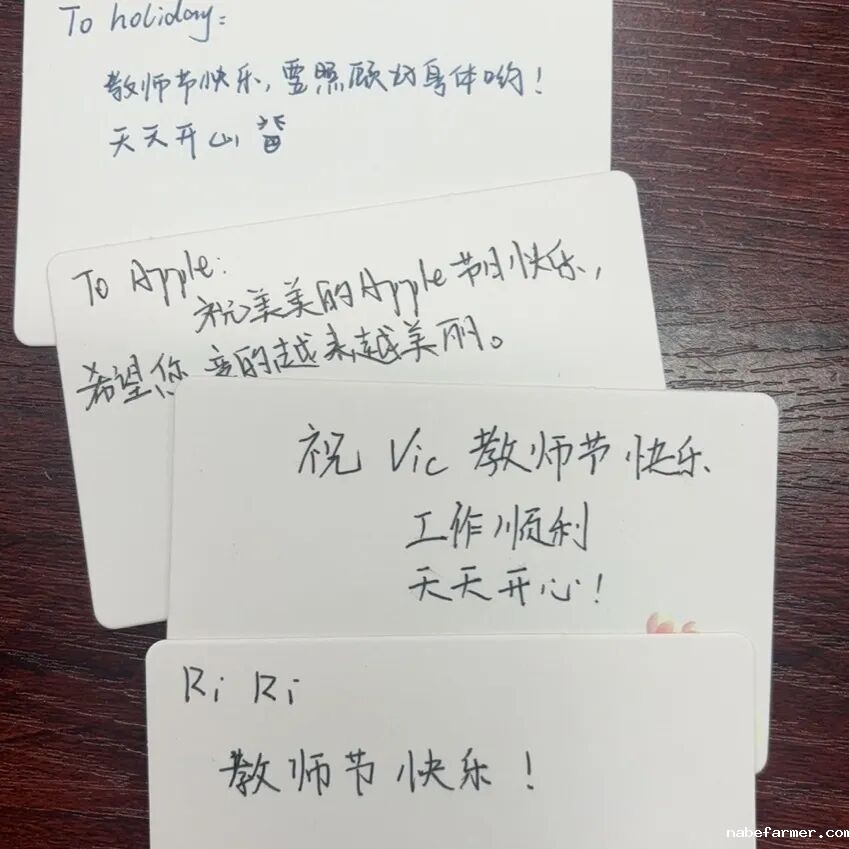 To holiday:
教师节快乐,要照顾好身体哟!
天天开心
To Apple:
祝美美的Apple节日快乐,
希望您变的越来越美丽。
祝 Vic 教师节快乐
工作顺利
天天开心!
Ri Ri
教师节快乐!
nabefarmer.com